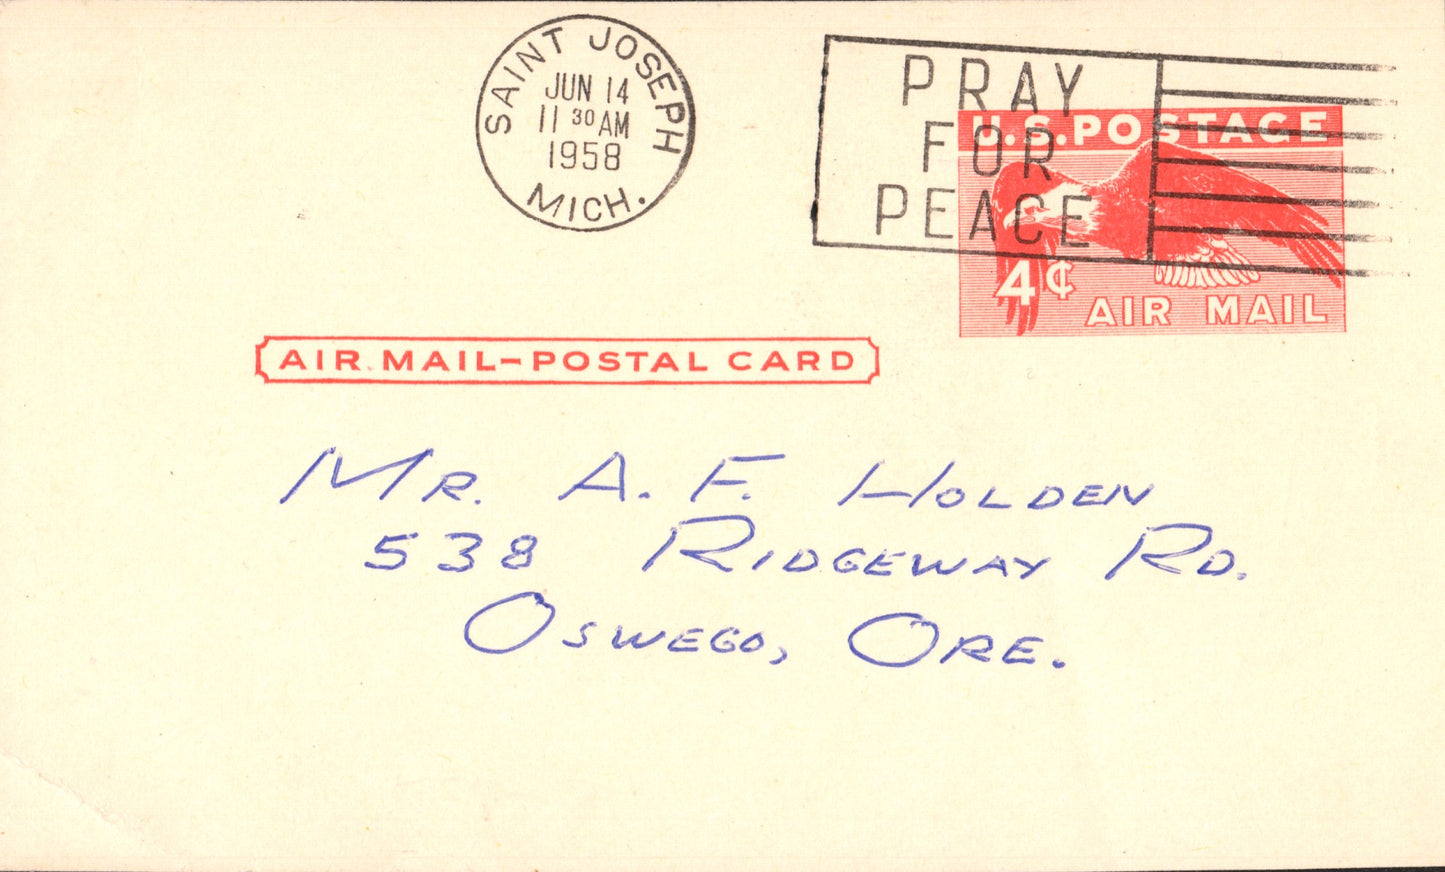 SAINT JOSEPH
JUN 14
11 30 AM
1958
MICH.
PRAY
FOR
PEACE
U.S. POSTAGE
4¢
AIR MAIL
AIR MAIL-POSTAL CARD
MR. A. F. HOLDEN
538 RIDGEWAY RD.
OSWEGO, ORE.